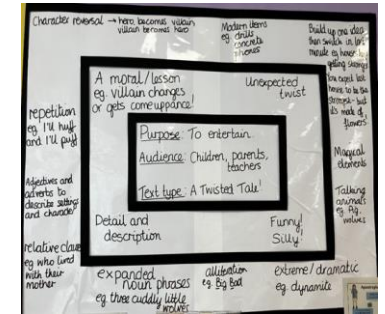 Character reversal → hero becomes villain
villain becomes hero
Modern items
eg. drills
concrete
phones
Build up one idea
then switch in last
minute eg house
getting stronger
You expect last
house to be the
strongest - but
its made of
flowers!
A moral/lesson
eg. villain changes
or gets comeuppance!
Unexpected
twist
repetition
eg I'll huff
and I'll puff
Purpose: To entertain
Audience: Children, parents,
teachers
Text type: A Twisted Tale!
Magical
elements
Talking
animals
eg. Pig,
wolves
Adjectives and
adverbs to
describe setting
and character
Detail and
description
Funny!
Silly!
relative clause
eg who lived
with their
mother
expanded
noun phrases
eg. three cuddly little
wolves
alliteration
eg. Big Bad
extreme/dramatic
eg. dynamite